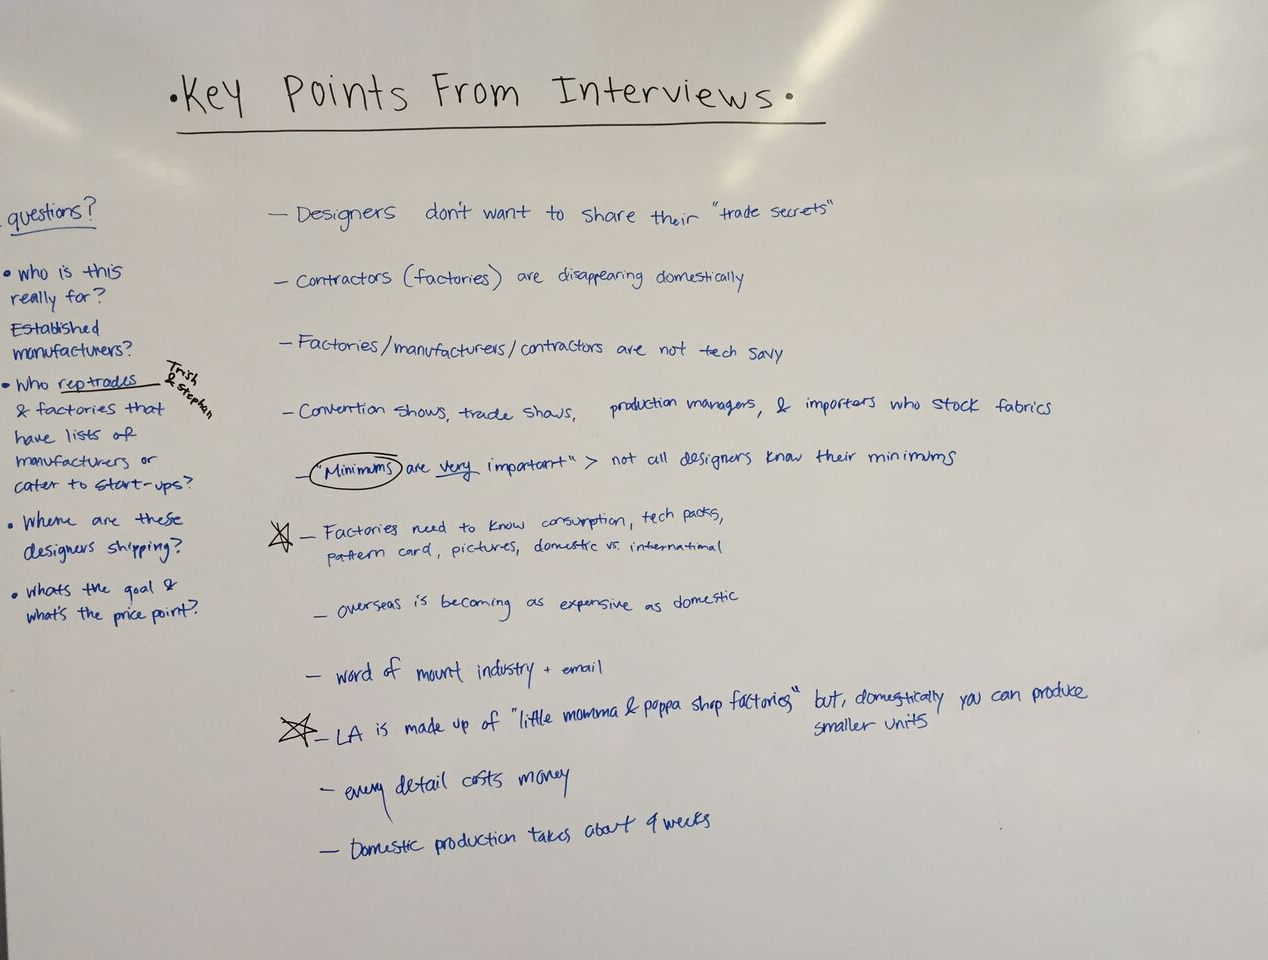 • Key Points From Interviews •
questions?
• who is this
really for?
Established
manufacturers?
• Who rep trades
& factories that
have lists of
manufacturers or
cater to start-ups?
Trish
& Stephan
• Where are these
designers shipping?
• whats the goal &
what's the price point?
– Designers don't want to share their "trade secrets"
– Contractors (factories) are disappearing domestically
– Factories/manufacturers/contractors are not tech savy
– Convention shows, trade shows, production managers, & importers who stock fabrics
– "Minimums are very important" > not all designers know their minimums
☆ – Factories need to know consumption, tech packs,
pattern card, pictures, domestic vs. international
– overseas is becoming as expensive as domestic
– word of mount industry + email
☆ – LA is made up of "little momma & poppa shop factories" but, domestically you can produce
smaller units
– every detail costs money
– Domestic production takes about weeks